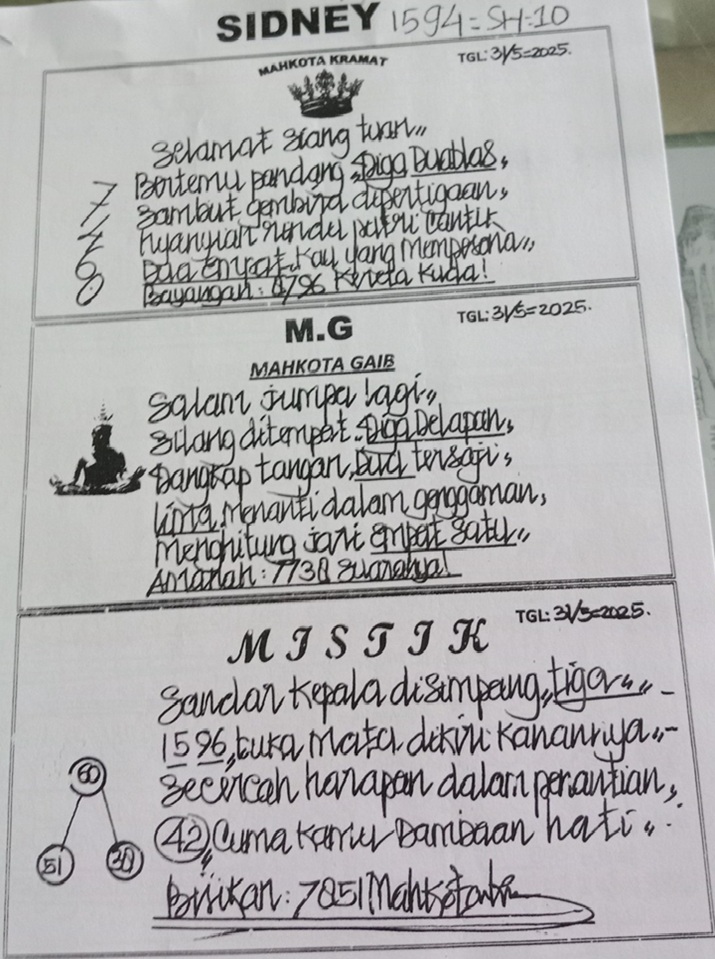 SIDNEY 1594=SH=10
MAHKOTA KRAMAT
TGL: 31/5=2025.
Selamat siang tuan,,
Bertemu pandang, Tiga Duablas,
Sambut gembira dipertigaan,
Nyanyian rindu putri cantik
Dua empat, kau yang mempesona,,
Bayangan: 8796 Kereta Kuda!
7
7
6
0
M.G
TGL: 31/5=2025.
MAHKOTA GAIB
Salam jumpa lagi,,
Silang ditempat. Tiga Delapan,
Tangkap tangan, Dua tersaji,
Lima, Menanti dalam genggaman,
Menghitung jari empat satu,,
Amanah: 7738 Suaranya!
TGL: 31/5=2025.
MISTIK
Sandar Kepala disimpang,, tiga,,,, -
1596, buka Mata dikiri kanannya,,-
Secercah harapan dalam penantian,
42, Cuma kamu Dambaan hati,,
60
51 30
Bisikan: 7851